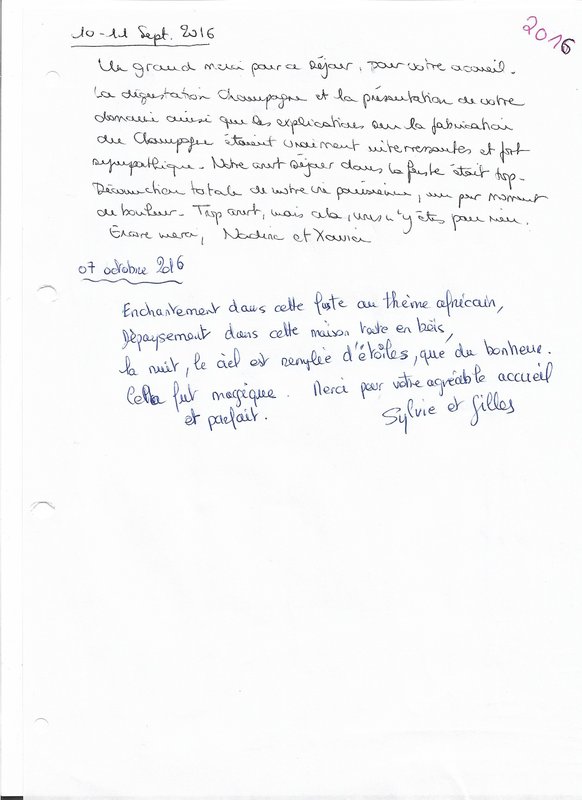 10-11 Sept. 2016
2016
Un grand merci pour ce séjour, pour votre accueil.
La dégustation Champagne et la présentation de votre
domaine ainsi que les explications sur la fabrication
du Champagne étaient vraiment interressantes et fort
sympathique. Notre court séjour dans la fuste était top.
Déconnection totale de notre vie parisienne, un pur moment
de bonheur. Trop court, mais cela, vous n'y êtes pour rien.
Encore merci, Nadine et Xavier
07 octobre 2016
Enchantement dans cette fuste au thème africain,
Dépaysement dans cette maison toute en bois,
la nuit, le ciel est remplie d'étoiles, que du bonheur.
Cella fut magique. Merci pour votre agréable accueil
et parfait.
Sylvie et Gilles